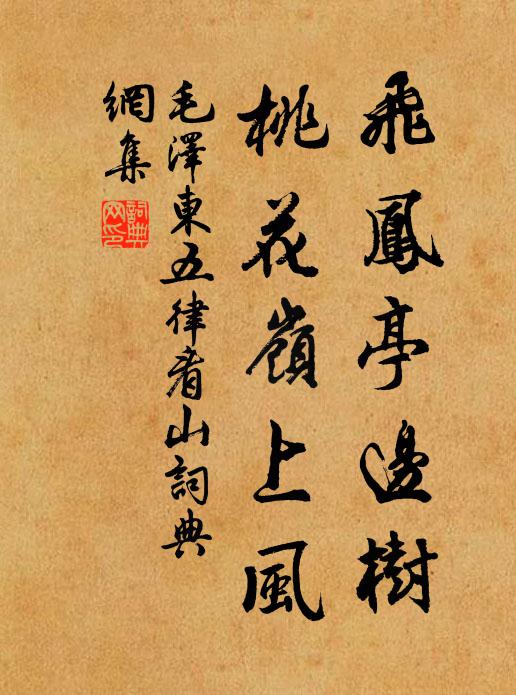 飛鳳亭邊樹
桃花嶺上風
毛澤東五律看山詞典
網集
詞典
网印